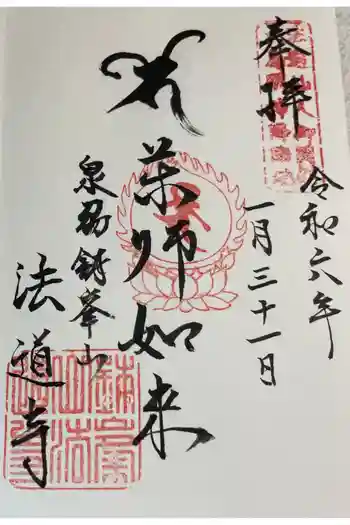 奉拝
令和六年
一月三十一日
薬師如来
泉州鉢峯山
法道寺